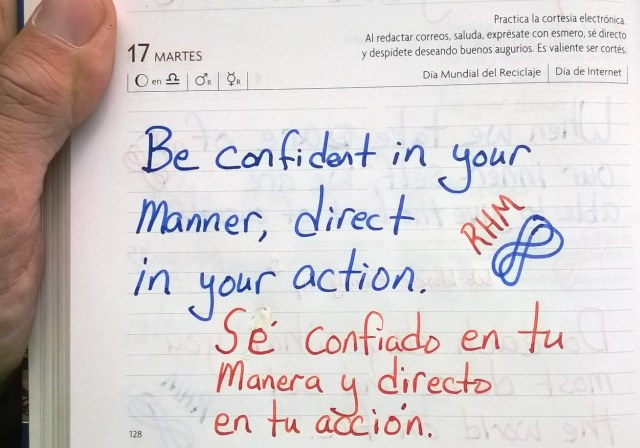 Practica la cortesía electrónica.
Al redactar correos, saluda, exprésate con esmero, sé directo
y despídete deseando buenos augurios. Es valiente ser cortés.
17 MARTES
en ♎ ♂R ☿R
Día Mundial del Reciclaje | Día de Internet
Be confident in your
Manner, direct
in your action.
RHM
Sé confiado en tu
Manera y directo
en tu acción.
128